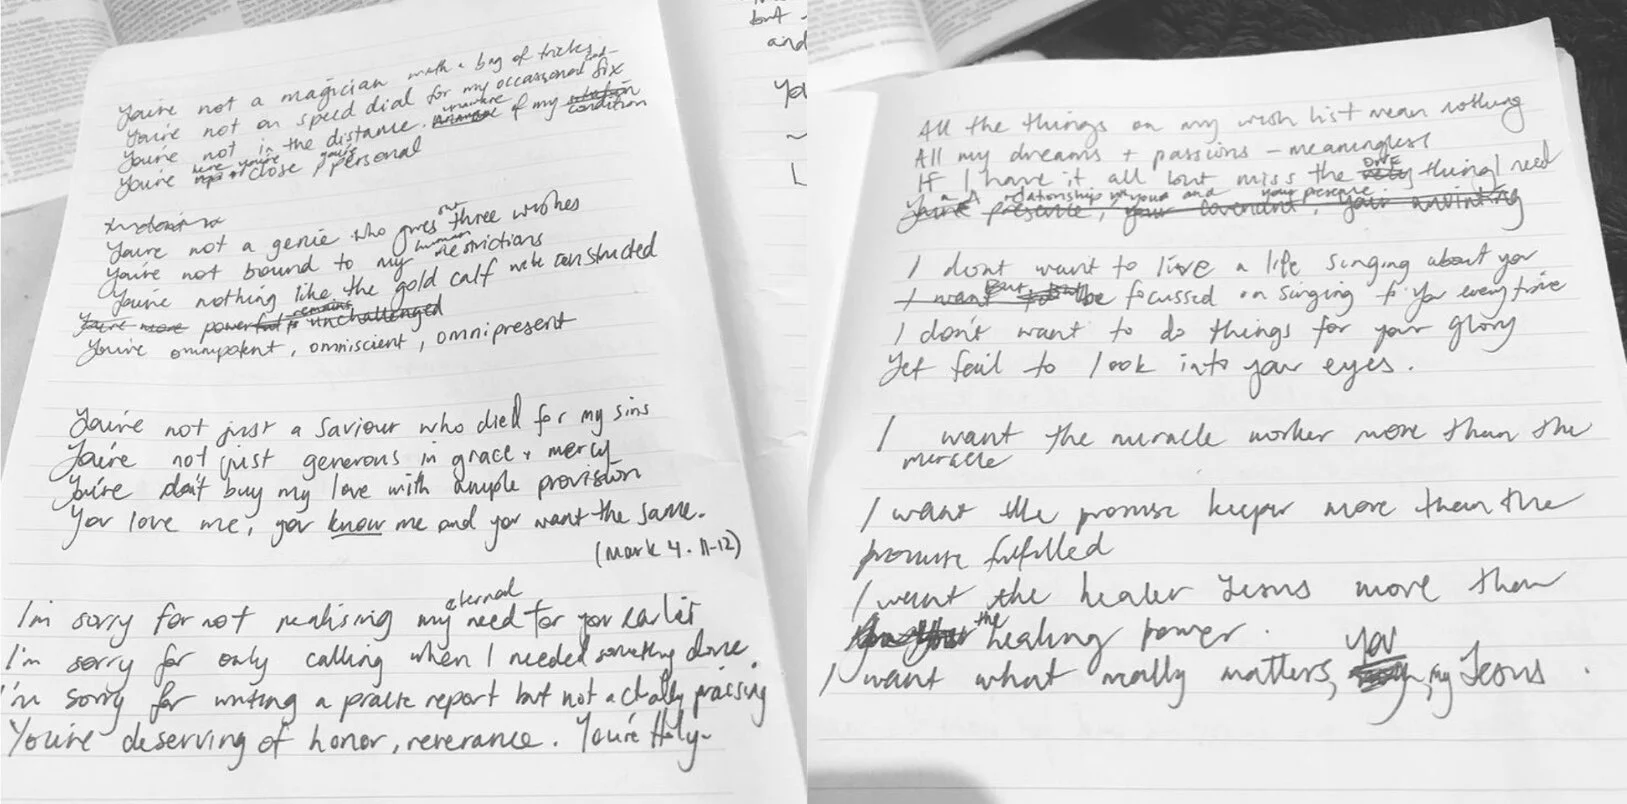 You're not a magician with a bag of tricks
You're not on speed dial for my occassional fix
You're not in the distance. unaware of my condition
You're here you're close you're personal
You're not a genie who gives out three wishes
You're not bound to my human restrictions
You're nothing like the gold calf we've constructed
You're more powerful remains unchallenged
You're omnipotent, omniscient, omnipresent
You're not just a Saviour who died for my sins
You're not just generous in grace + mercy
You're don't buy my love with ample provision
You love me, you know me and you want the same.
(Mark 4. 11-12)
I'm sorry for not realising my eternal need for you earlier
I'm sorry for only calling when I needed something done.
I'm sorry for writing a praise report but not actually praising
You're deserving of honor, reverance. You're Holy-
but -
and
You
~
L
All the things on my wish list mean nothing
All my dreams + passions - meaningless
If I have it all but miss the ONE very thing I need
a relationship your and your presence.
presence, your covenant, your anointing
I dont want to live a life singing about you
I want But be focussed on singing to you everytime
I don't want to do things for your glory
Yet fail to look into your eyes.
I want the miracle worker more than the
miracle
I want the promise keeper more than the
promise fulfilled
I want the healer Jesus more than
the healing power.
I want what really matters, you, my Jesus.